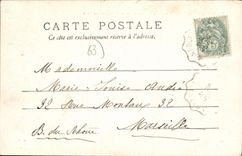 CARTE POSTALE
Ce côté est exclusivement réservé à l'adresse.
63
Mademoiselle
Marie-Louise André
32 Rue Montaux 32
B. du Rhône Marseille